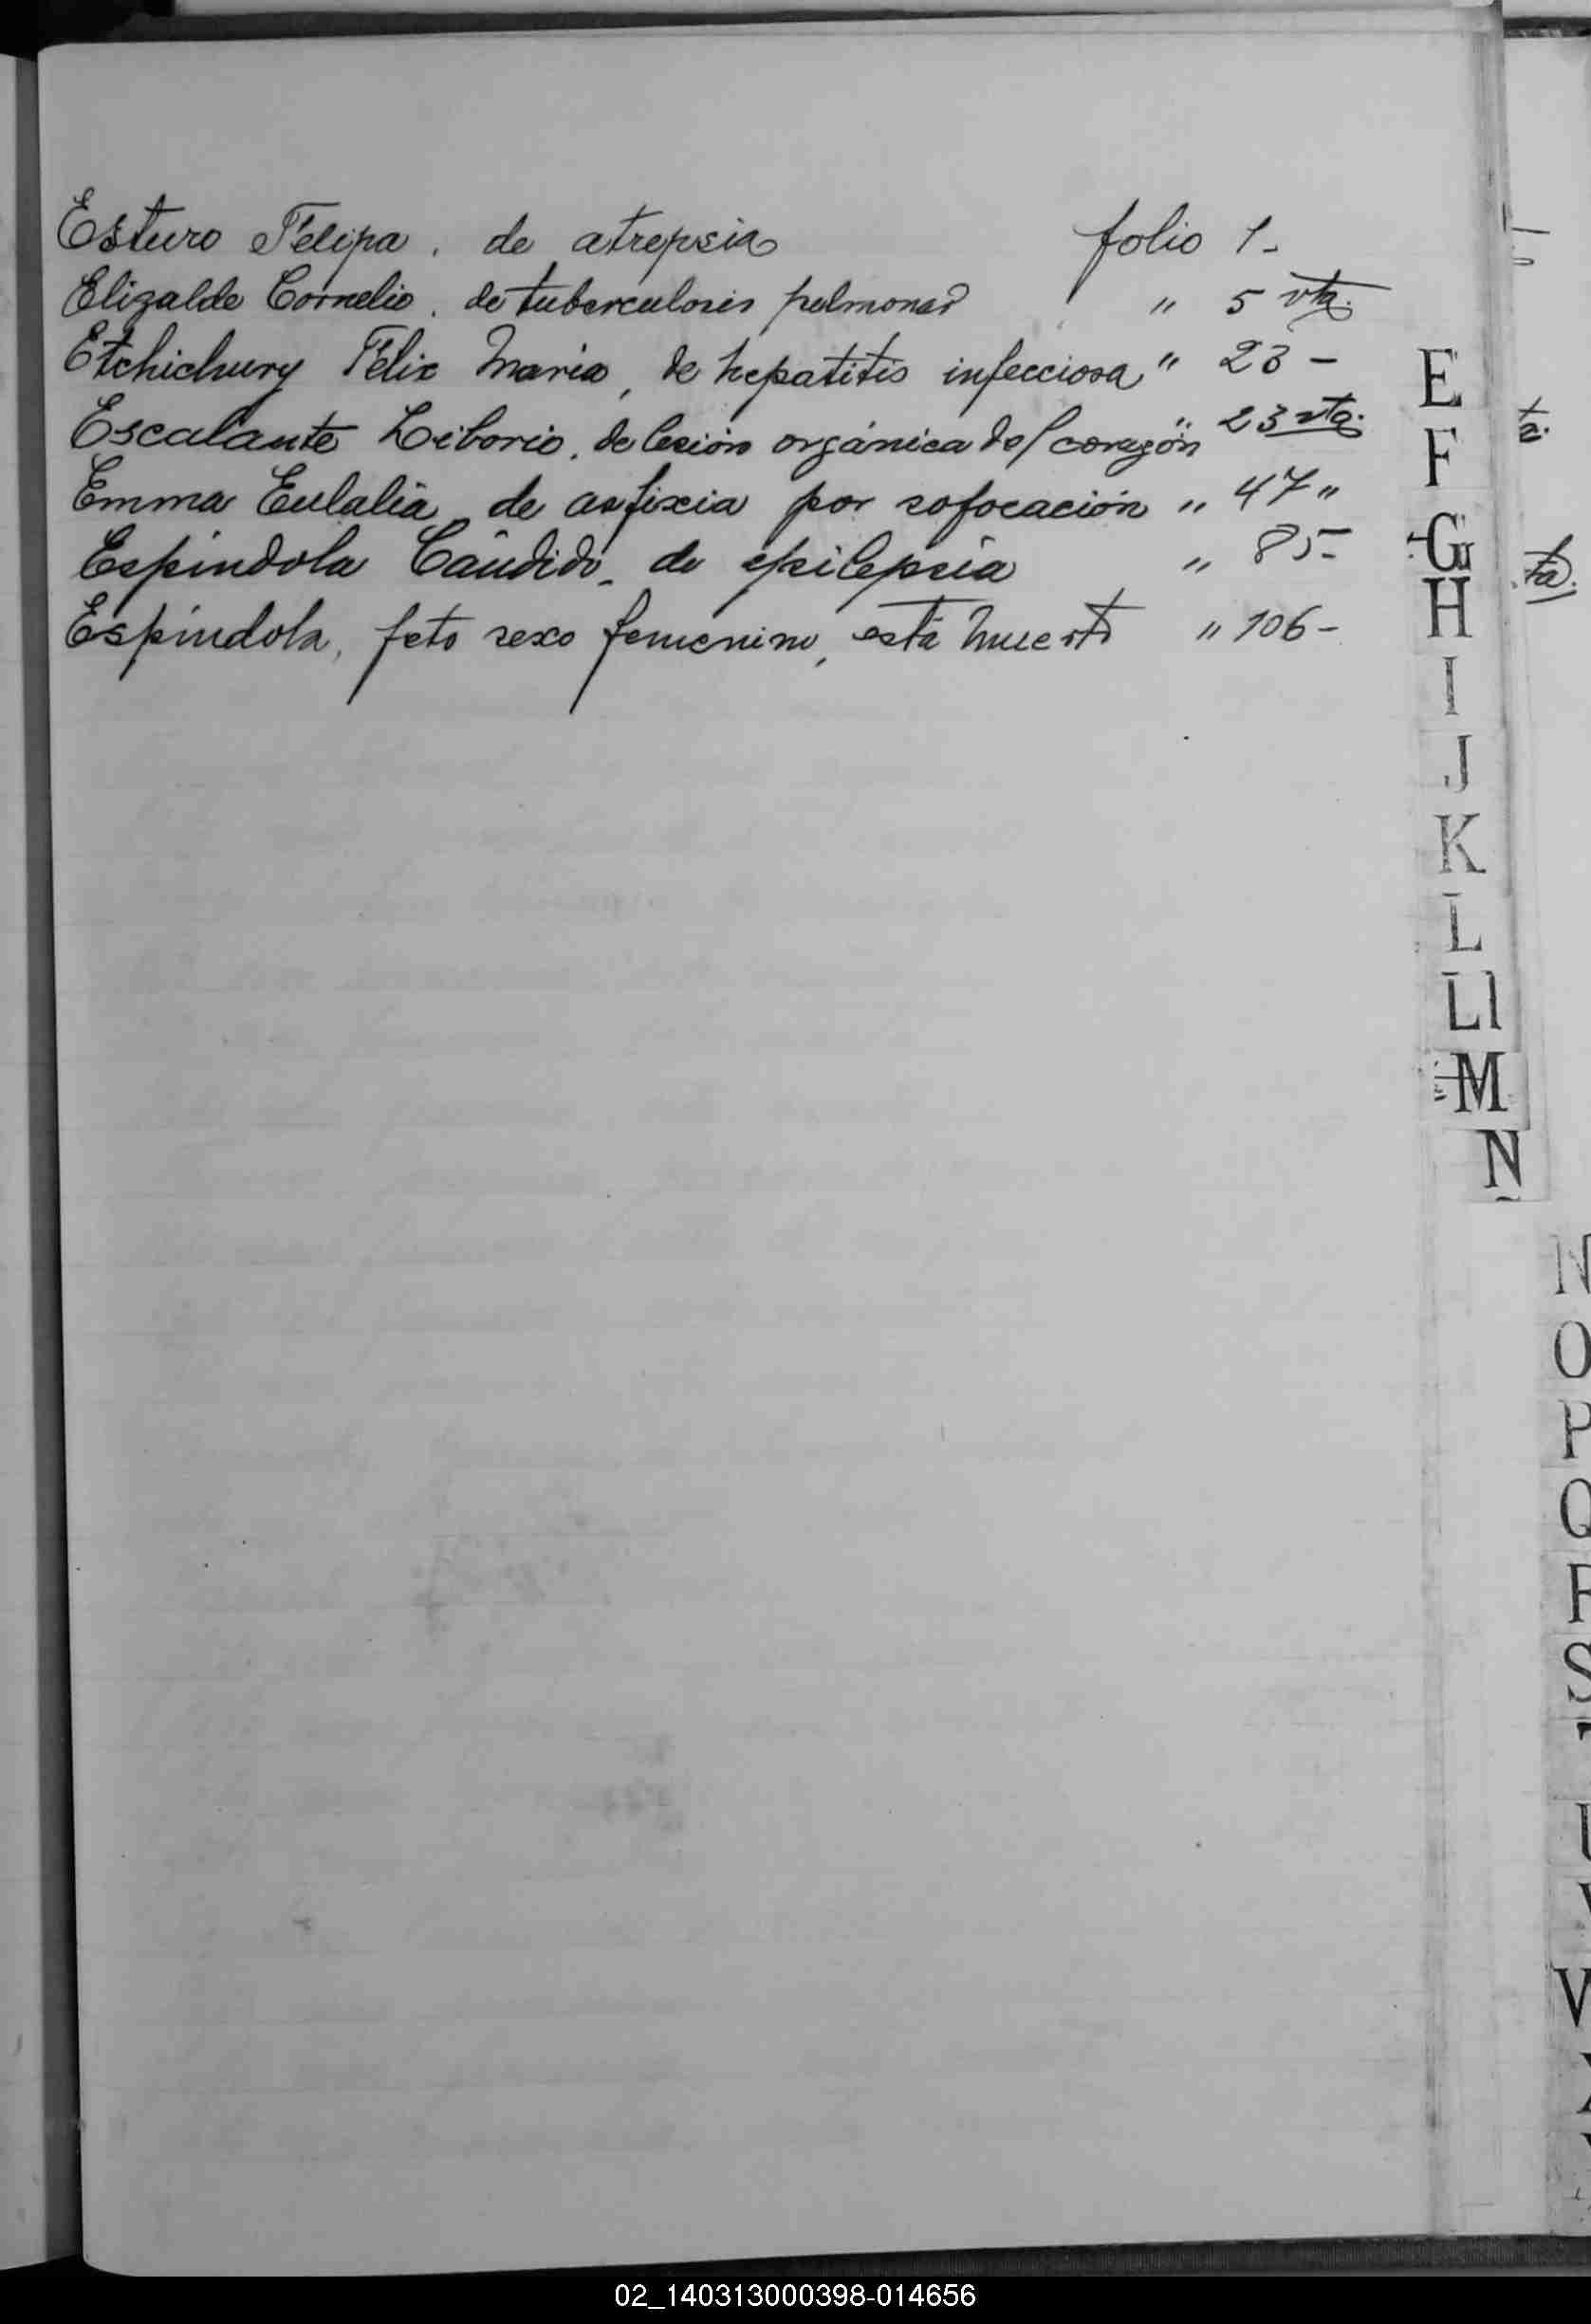 Esturo Felipa. de atrepsia folio 1-
Elizalde Cornelio. de tuberculosis pulmonar " 5 vta.
Etchichury Félix María, de hepatitis infecciosa " 23 -
Escalante Liborio. de lesión orgánica del corazón " 23 vta.
Emma Eulalia, de asfixia por sofocación " 47 "
Espíndola Cándido. de epilepsia " 85-
Espíndola, feto sexo femenino, está muerto " 106-
E
F
G
H
I
J
K
L
Ll
M
Ñ
N
O
P
Q
R
S
T
U
V
02_140313000398-014656